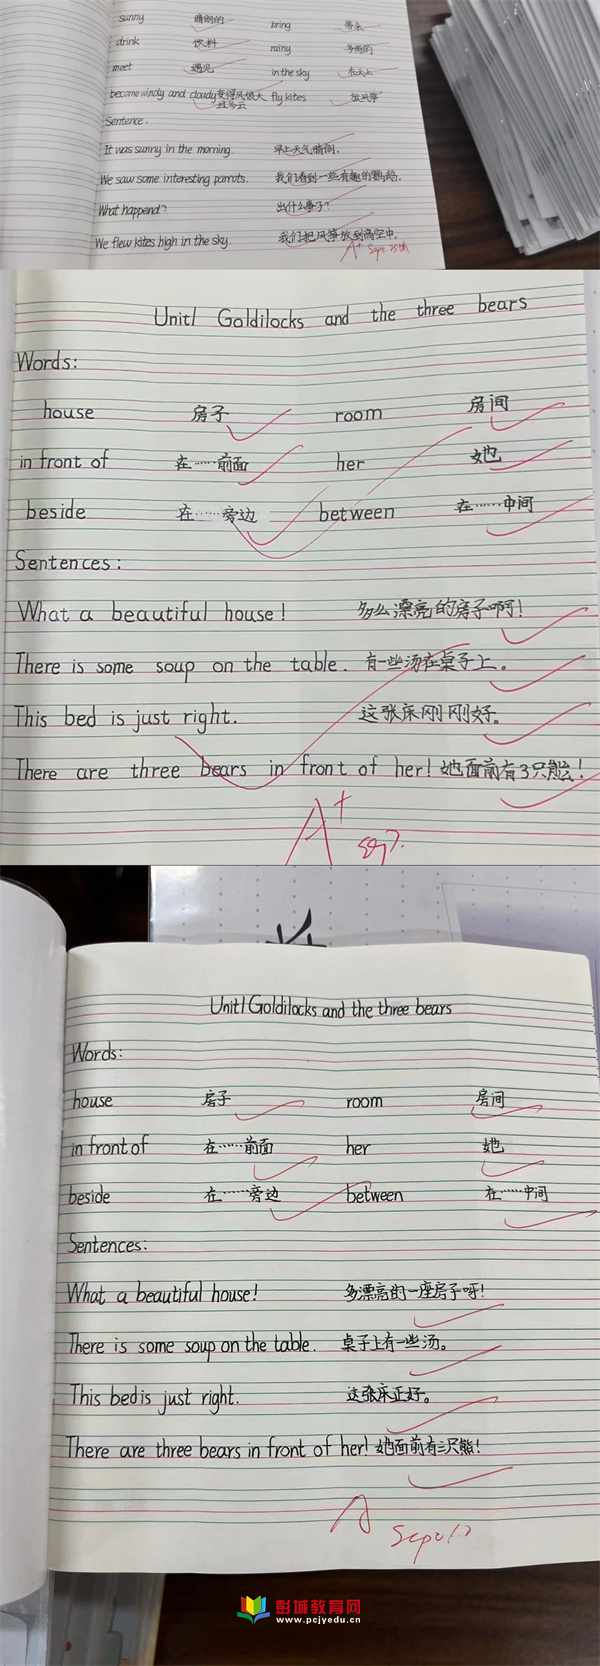 sunny 晴朗的 bring 带来
drink 饮料 rainy 多雨的
meet 遇见 in the sky 在天上
become windy and cloudy 变得风很大且多云 fly kites 放风筝
Sentence.
It was sunny in the morning. 早上天气晴朗.
We saw some interesting parrots. 我们看到一些有趣的鹦鹉.
What happend? 出什么事了?
We flew kites high in the sky. 我们把风筝放到高空中.
A+ Sept 25th
Unit1 Goldilocks and the three bears
Words:
house 房子 room 房间
in front of 在……前面 her 她
beside 在……旁边 between 在……中间
Sentences:
What a beautiful house! 多么漂亮的房子啊!
There is some soup on the table. 有一些汤在桌子上。
This bed is just right. 这张床刚刚好。
There are three bears in front of her! 她面前有3只熊!
A+
Unit1 Goldilocks and the three bears
Words:
house 房子 room 房间
in front of 在……前面 her 她
beside 在……旁边 between 在……中间
Sentences:
What a beautiful house! 多漂亮的一座房子呀!
There is some soup on the table. 桌子上有一些汤。
This bed is just right. 这张床正好。
There are three bears in front of her! 她面前有三只熊!
A
彭城教育网
www.pcjyedu.cn